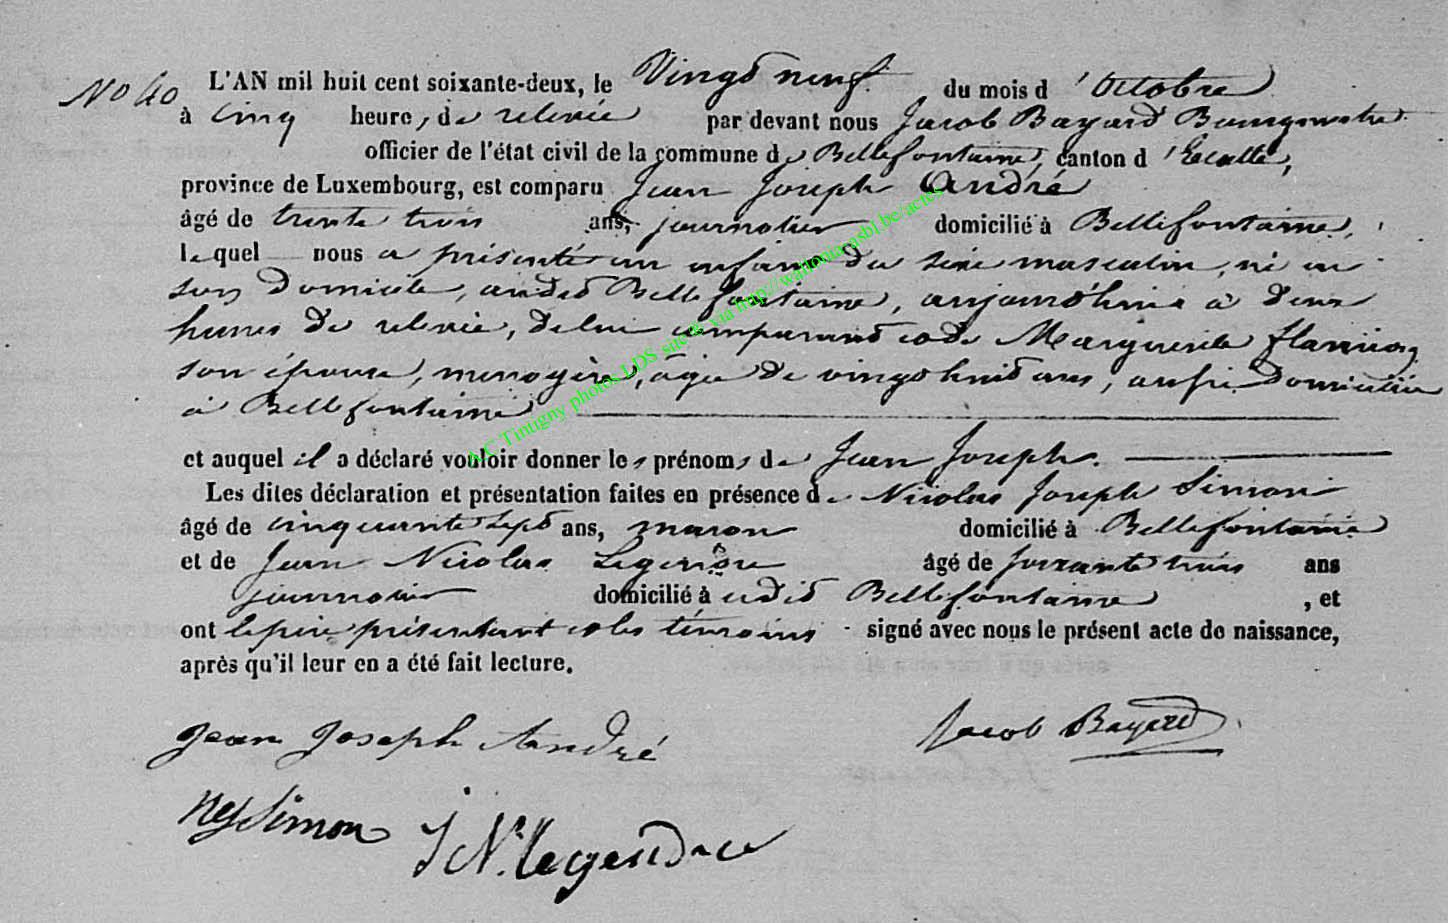 No 40 L'AN mil huit cent soixante-deux, le Vingt neuf du mois d'Octobre
à cinq heure, de relevée par devant nous Jacob Bayard Bourgmestre
officier de l'état civil de la commune de Bellefontaine, canton d'Etalle,
province de Luxembourg, est comparu Jean Joseph André
âgé de trente trois ans, journalier domicilié à Bellefontaine,
lequel nous a présenté un enfant du sexe masculin, né en
son domicile, audit Bellefontaine, aujourd'hui à deux
heures de relevée, de lui comparant et de Marguerite
son épouse, menagère, agée de vingt huit ans, aussi domiciliée
à Bellefontaine
et auquel il a déclaré vouloir donner les prénoms de Jean Joseph.
Les dites déclaration et présentation faites en présence de Nicolas Joseph Simon
âgé de cinquante sept ans, maron domicilié à Bellefontaine
et de Jean Nicolas âgé de soixante trois ans
journalier domicilié à udit Bellefontaine, et
ont le père présentant et les témoins signé avec nous le présent acte de naissance,
après qu'il leur en a été fait lecture.
Jean Joseph André
Jacob Bayard
NJ Simon
J N. Legendre
A.C Tintigny photos LDS site & via http://wallonia-asbl.be/actes